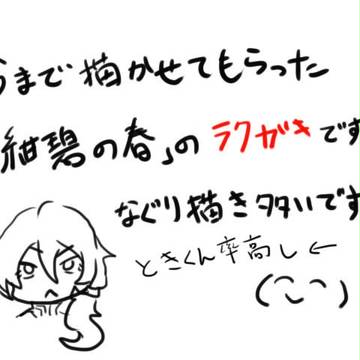 まで描かせてもらった
紺碧の春」のラクガキです
なぐり描き多いです
ときくん率高し←